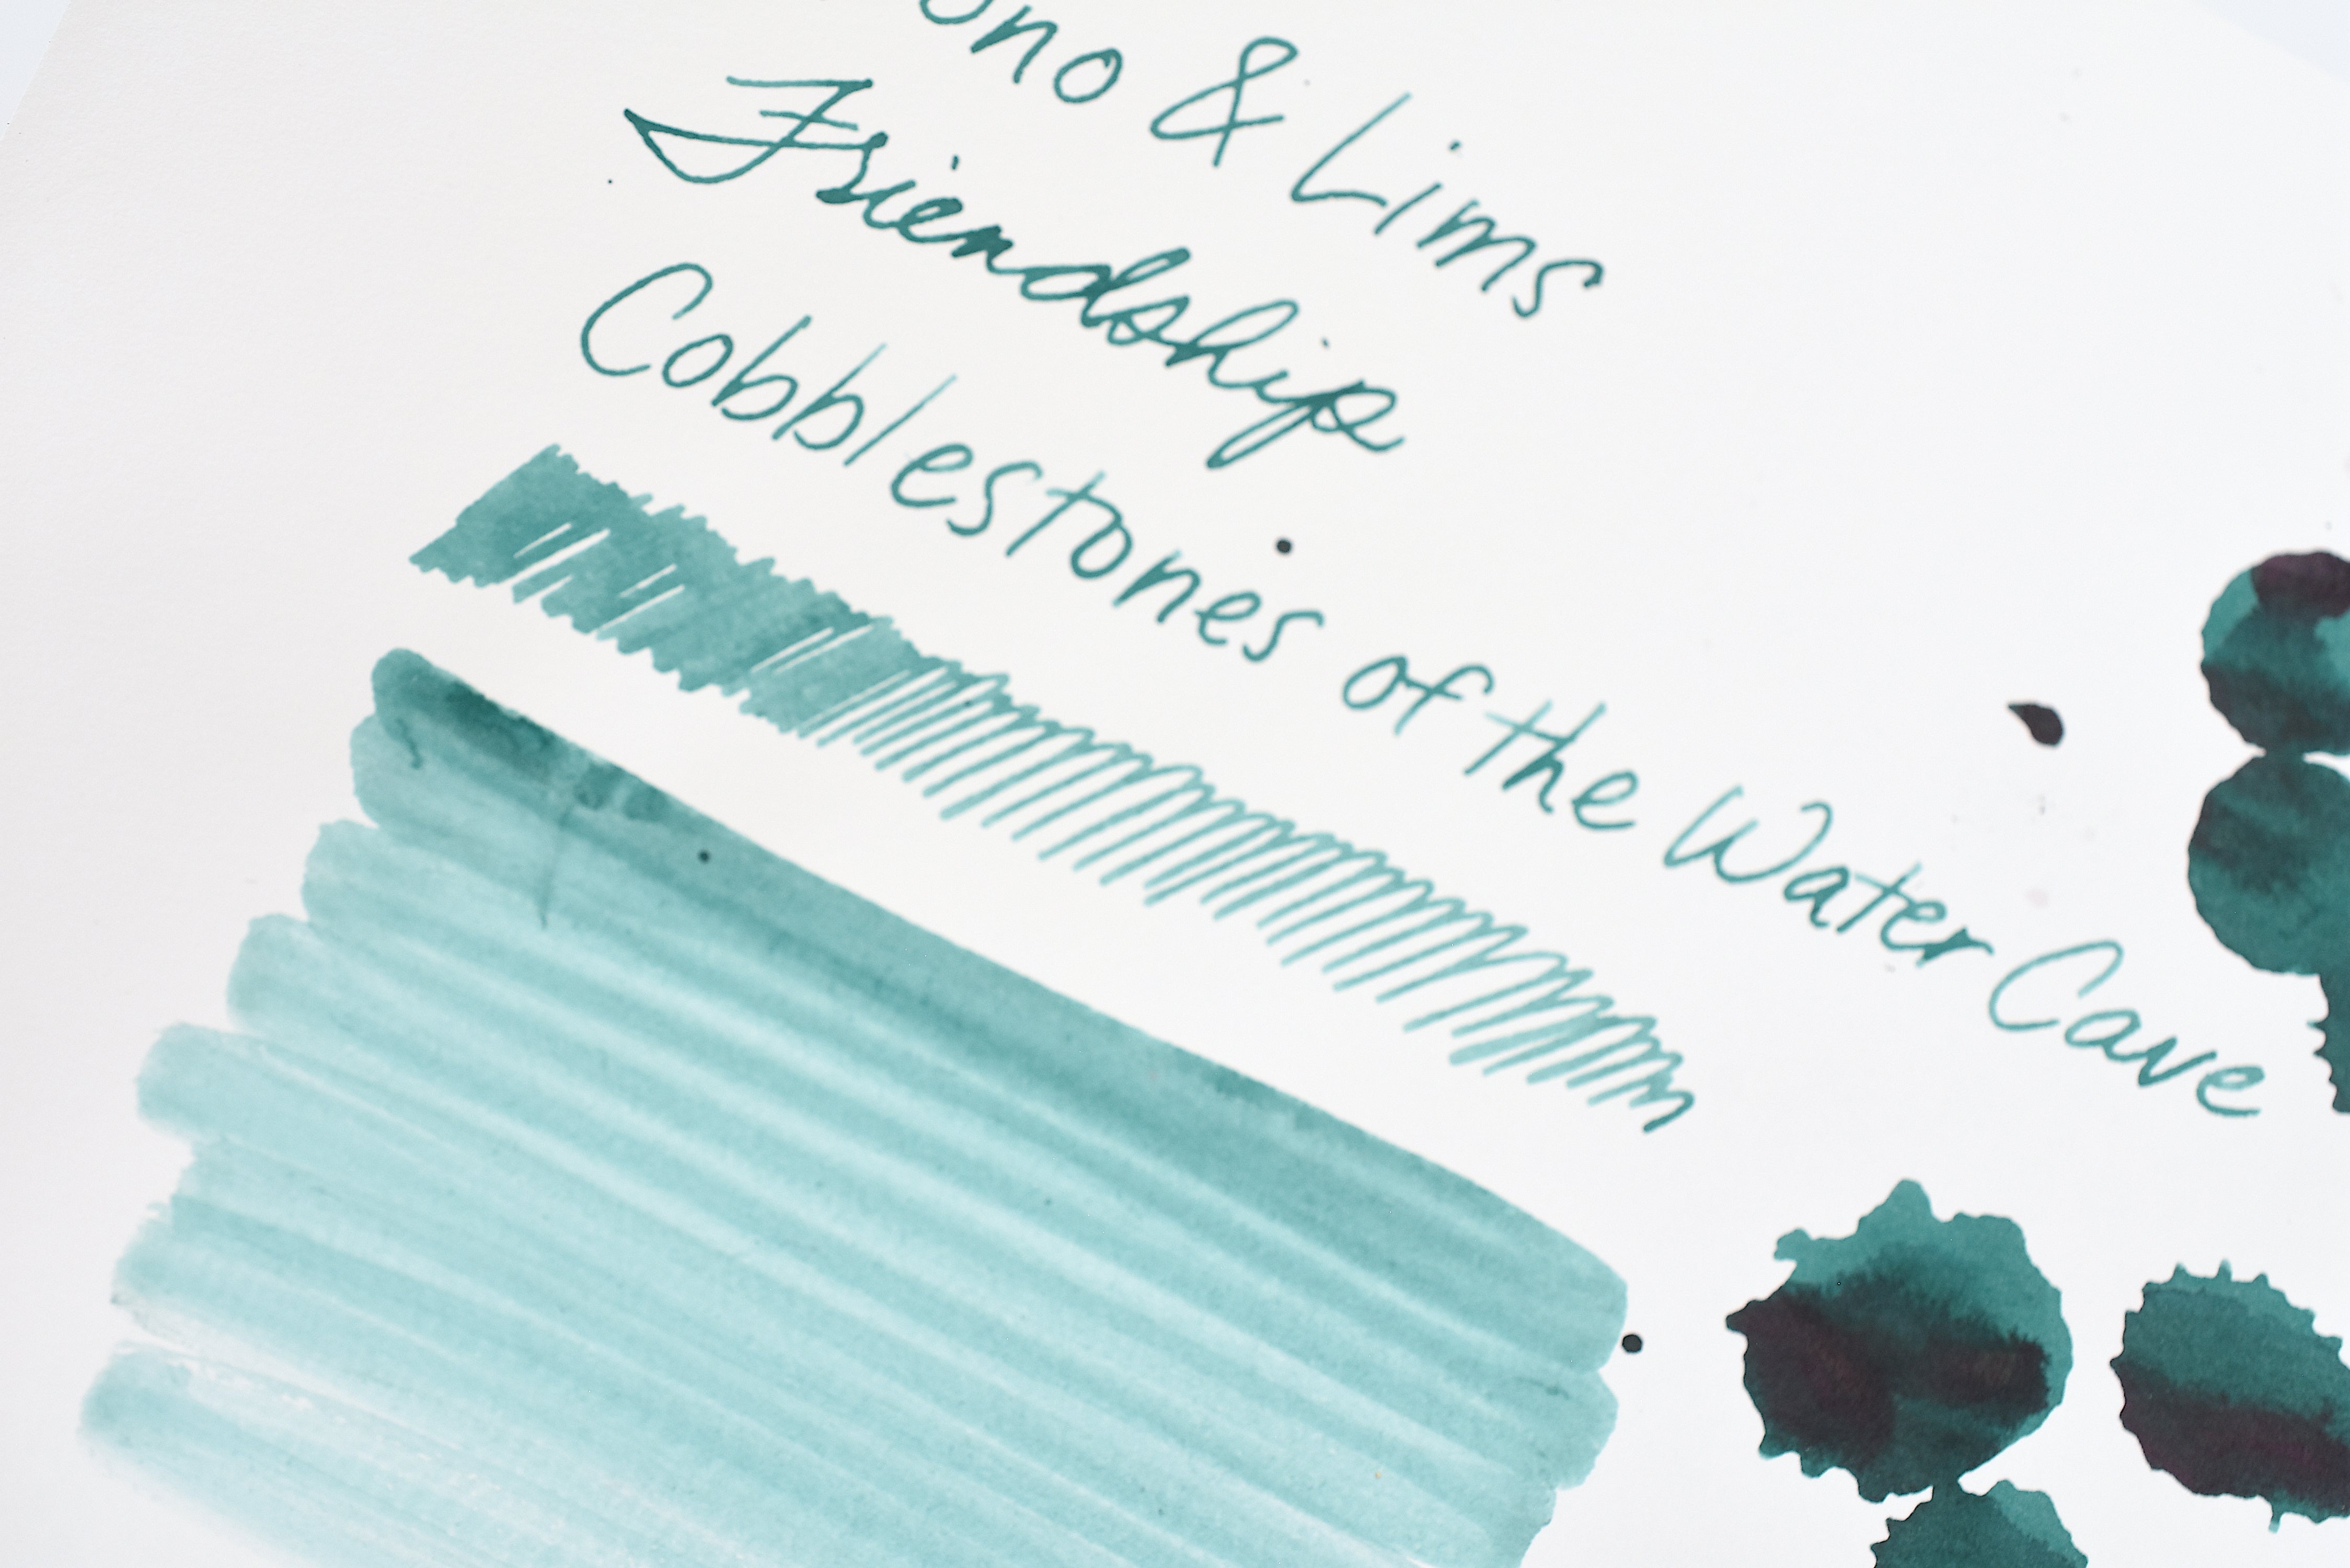 & Lims
Friendship
Cobblestones of the Water Cave